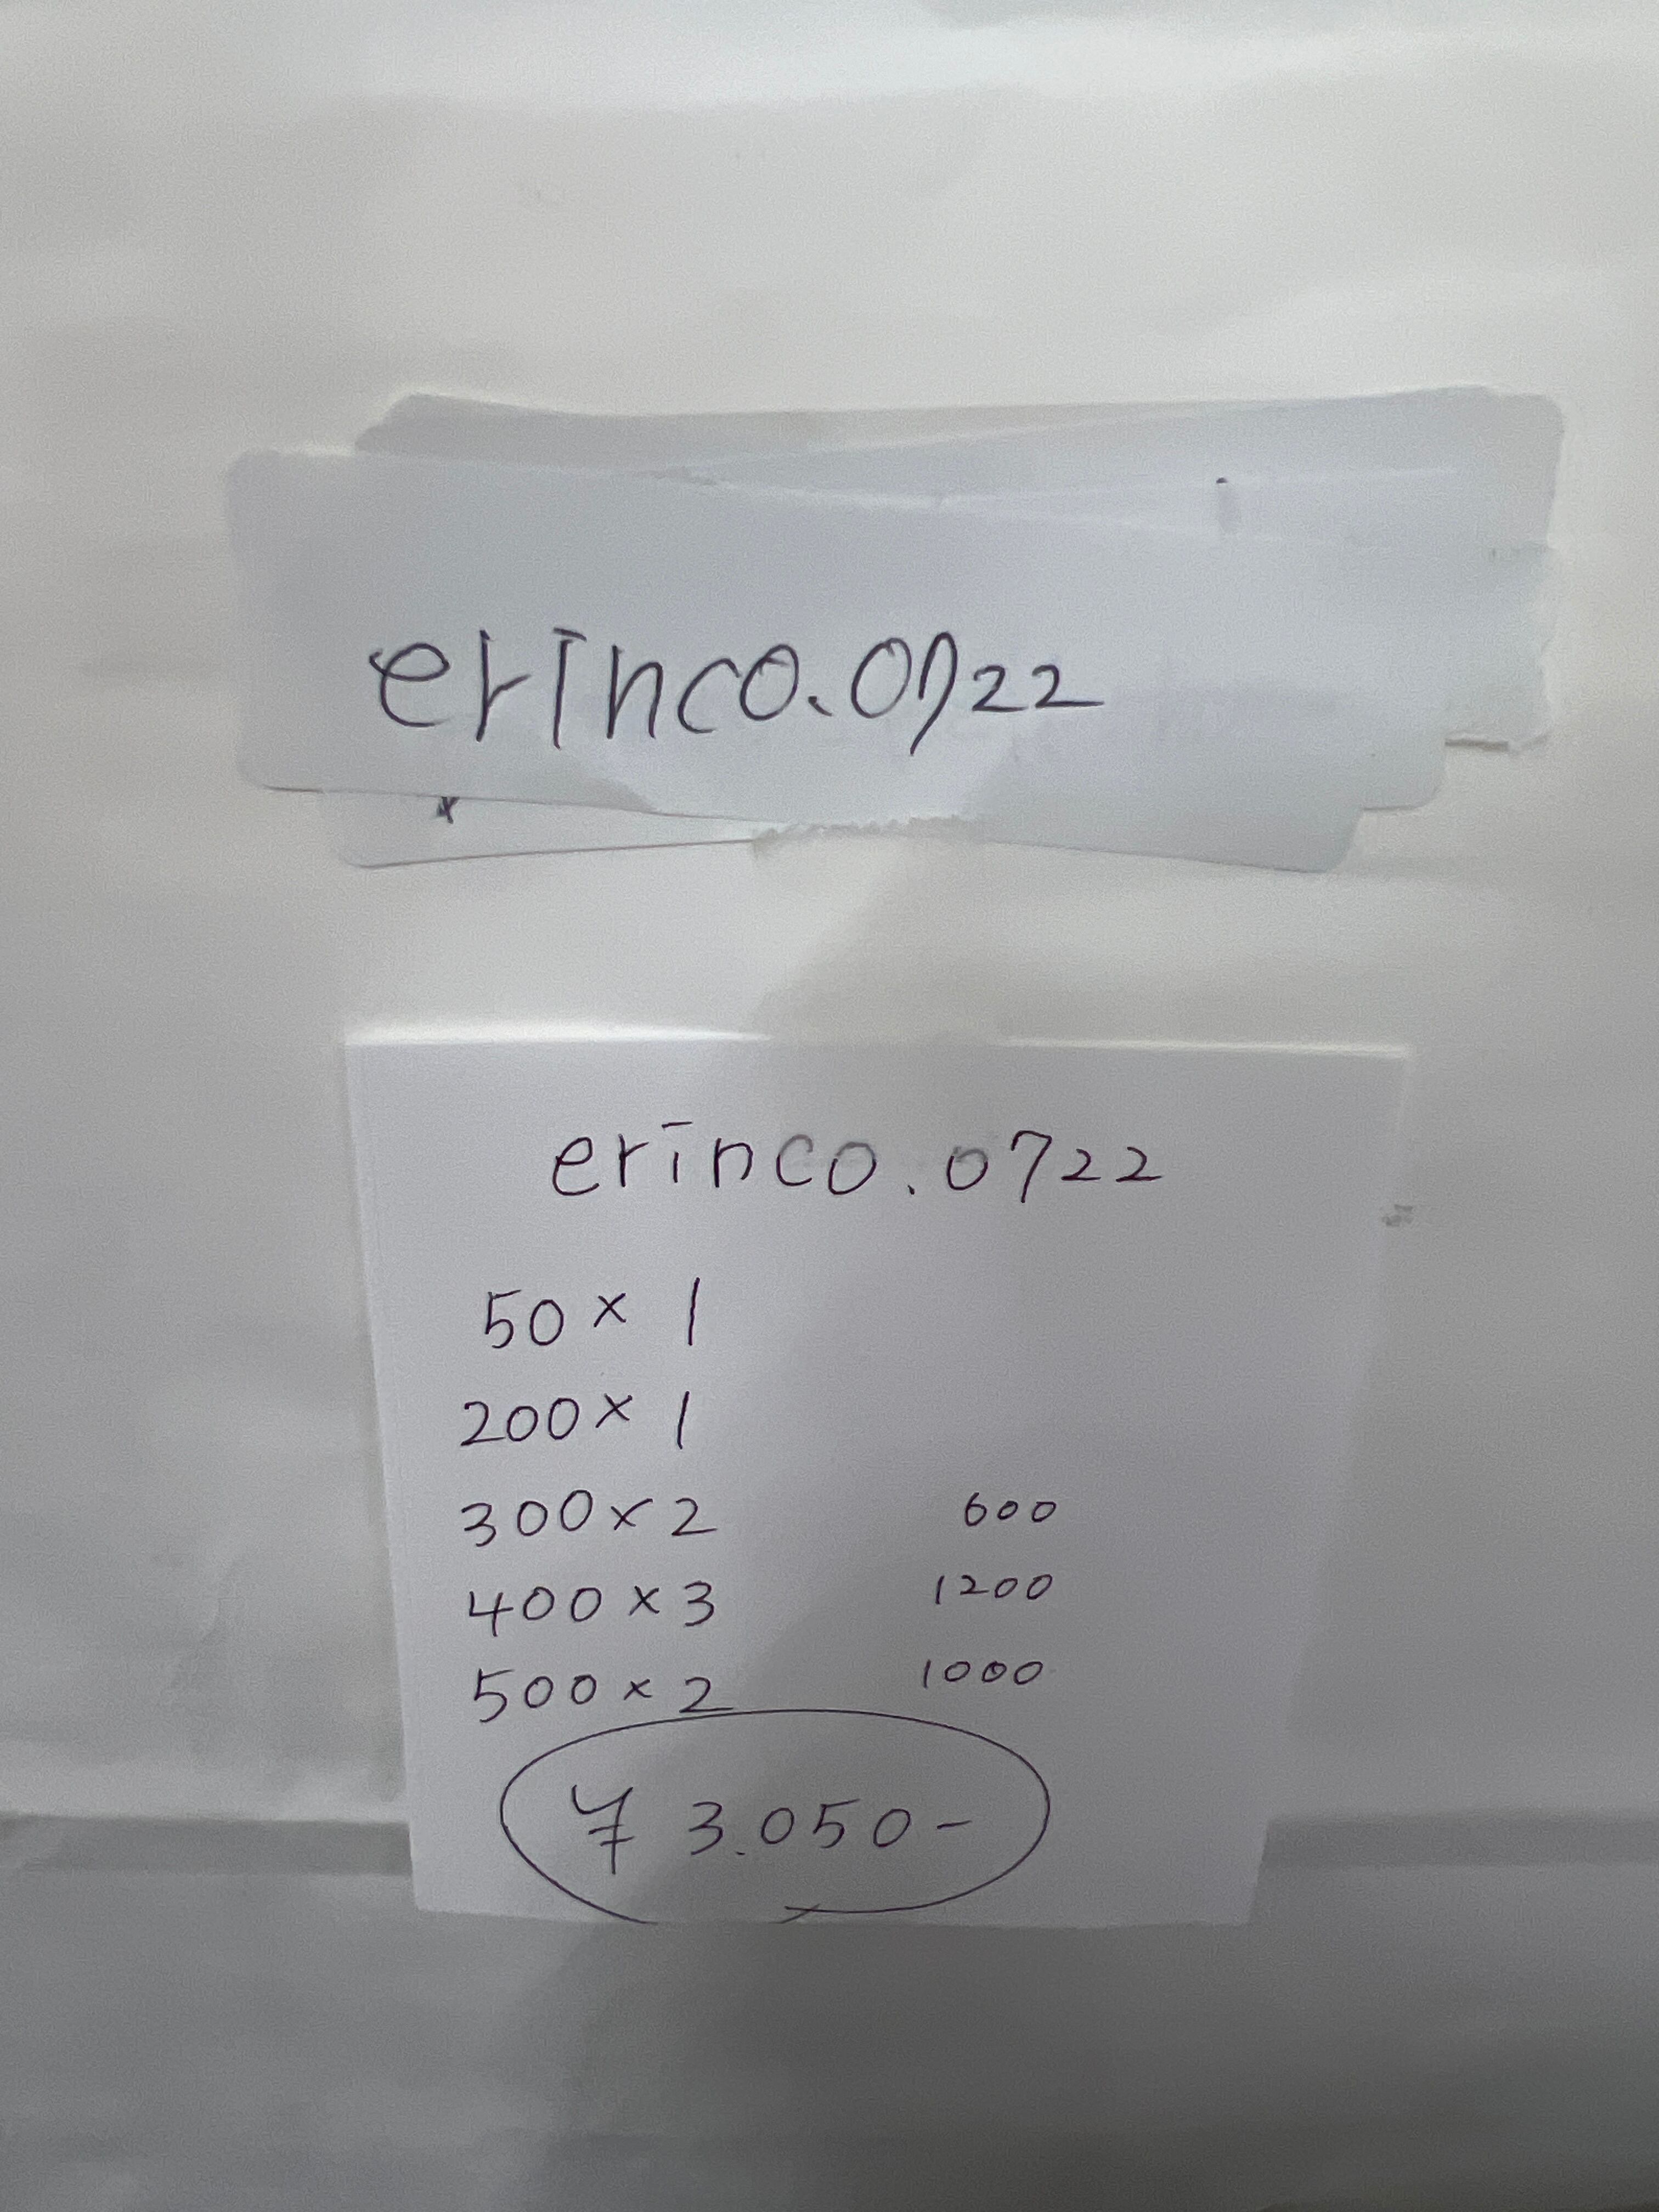 erinco.0722
erinco.0722
50×1
200×1
300×2 600
400×3 1200
500×2 1000
¥3.050-